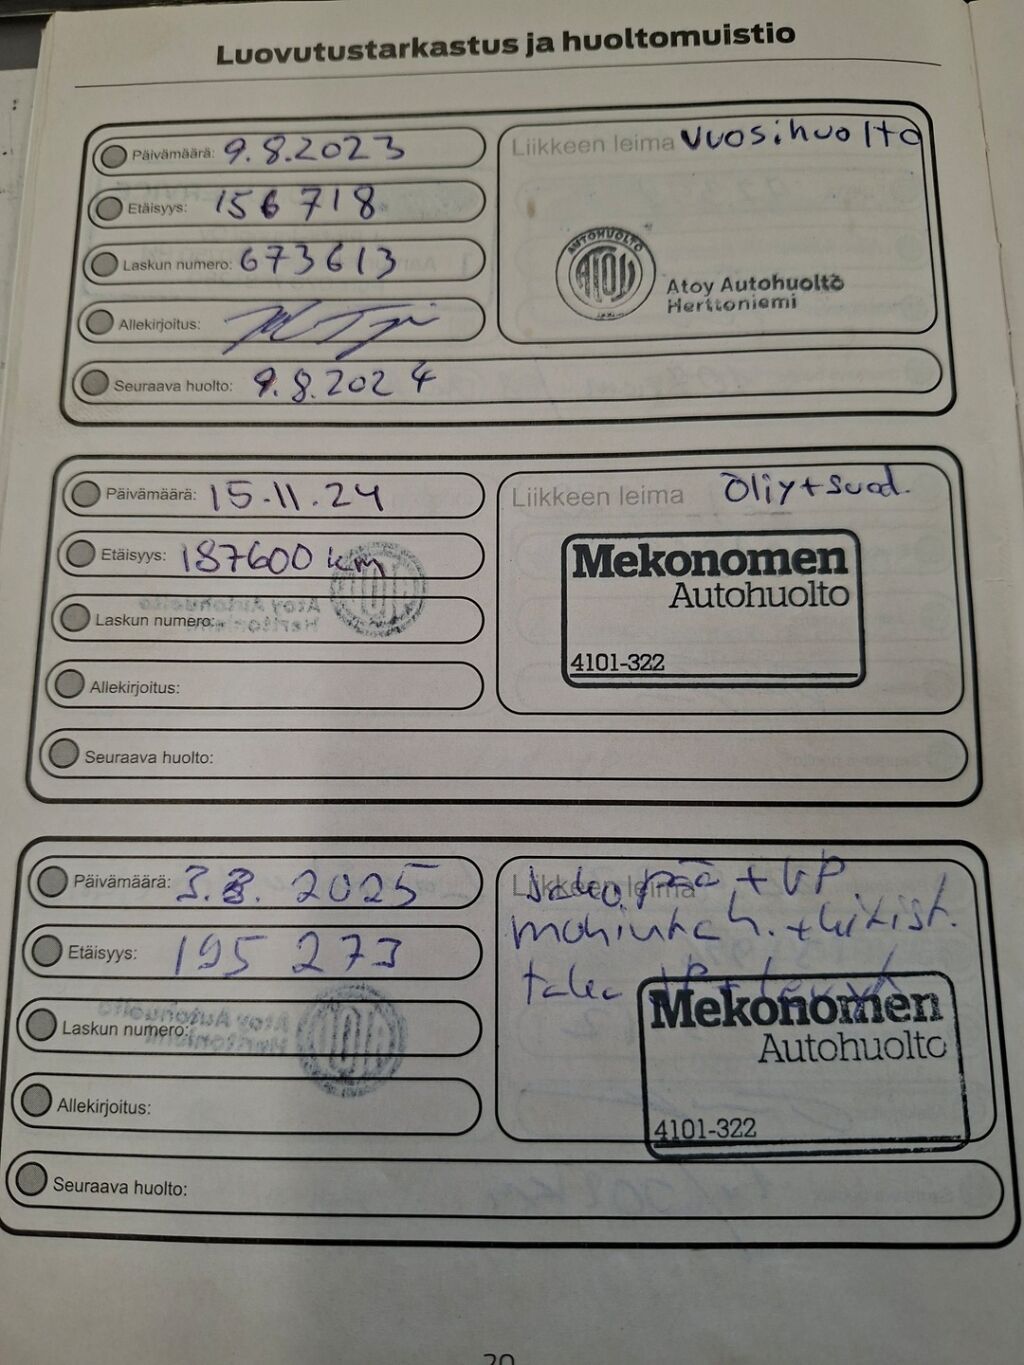 Luovutustarkastus ja huoltomuistio
Päivämäärä: 9.8.2023
Etäisyys: 156 718
Laskun numero: 673613
Allekirjoitus:
Seuraava huolto: 9.8.2024
Liikkeen leima vuosihuolto
AUTOHUOLTO
ATOY
Atoy Autohuolto
Herttoniemi
Päivämäärä: 15.11.24
Etäisyys: 187600 km
Laskun numero:
Allekirjoitus:
Seuraava huolto:
Liikkeen leima öljy+suod.
Mekonomen
Autohuolto
4101-322
Päivämäärä: 3.3. 2025
Etäisyys: 195 273
Laskun numero:
Allekirjoitus:
Seuraava huolto:
Liikkeen leima
Jako pää + VP
taka VP
Mekonomen
Autohuolto
4101-322
20